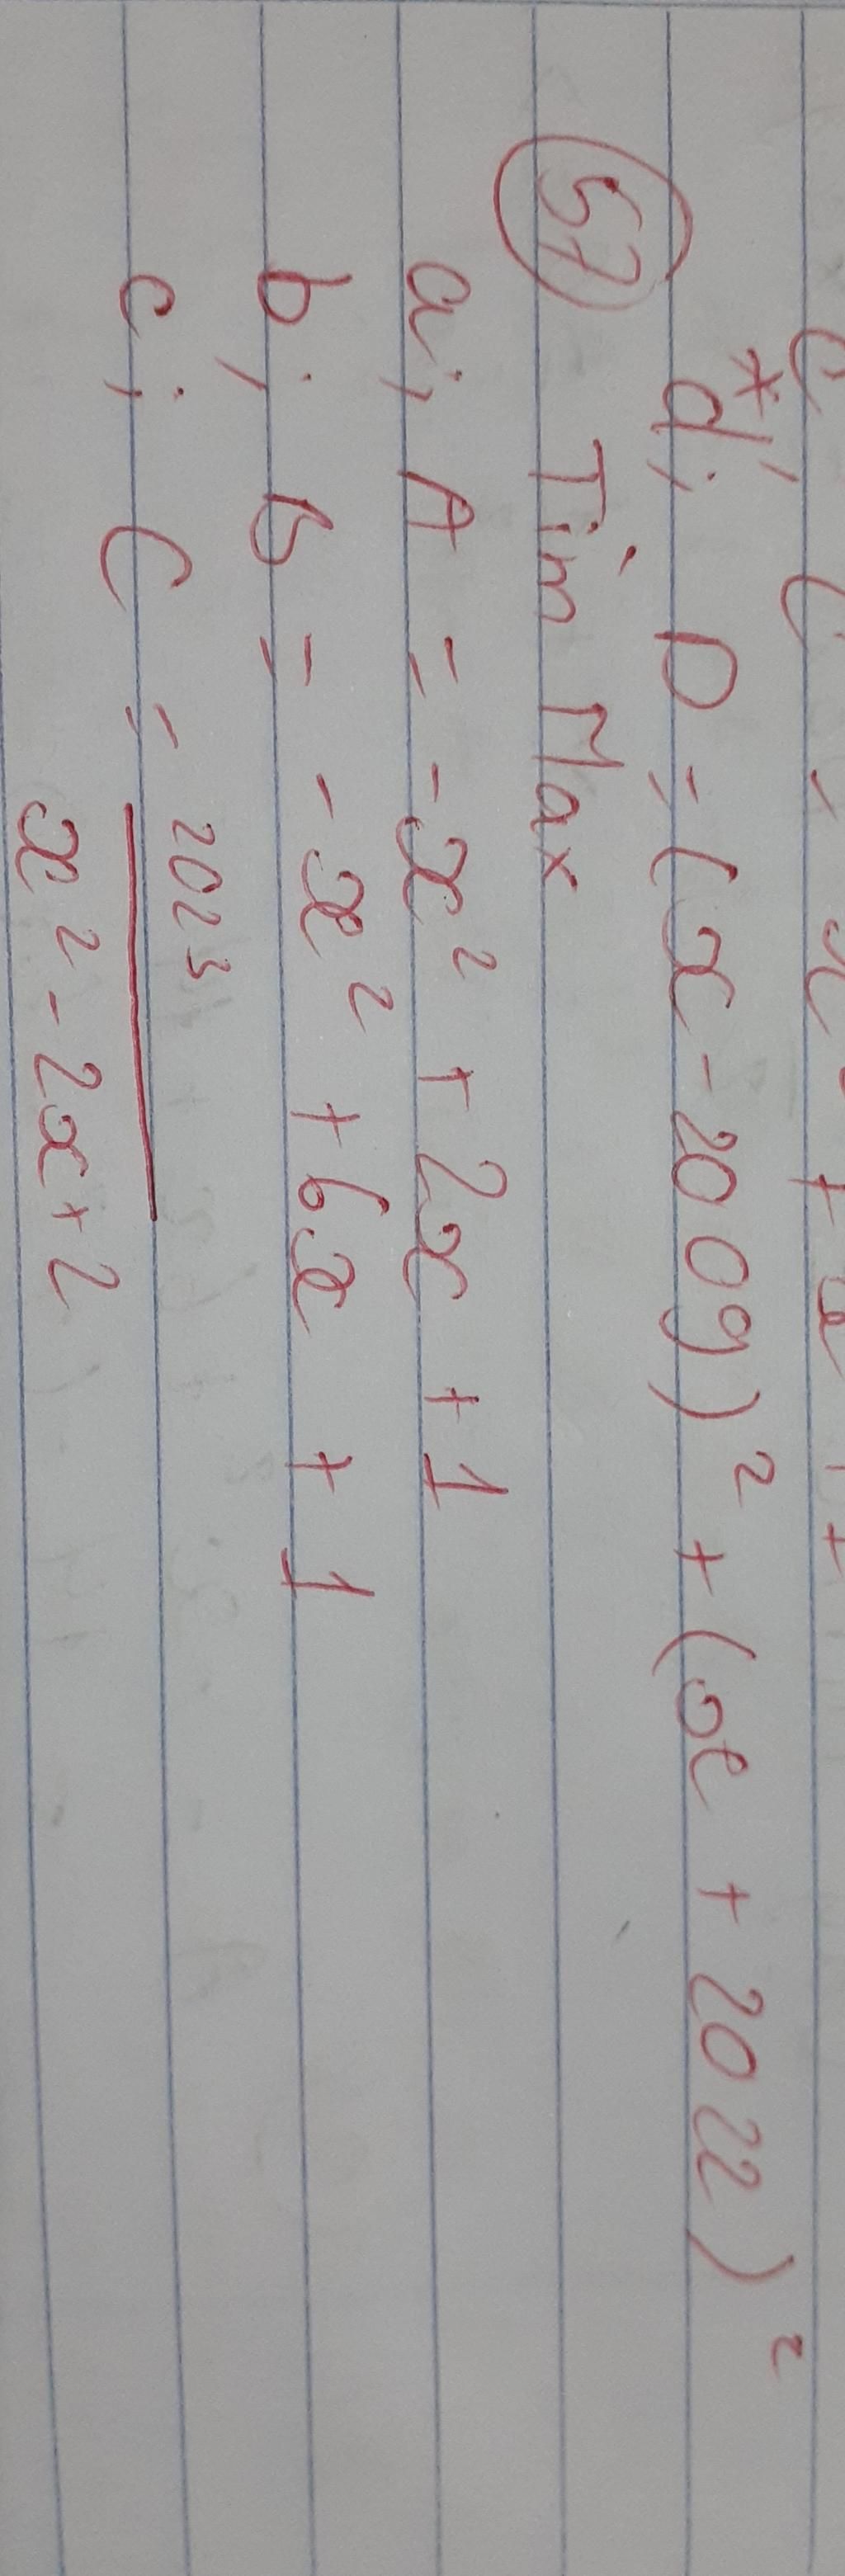 * d; D = (x - 2009)² + (x + 2022)²
57 Tìm Max
a; A = -x² + 2x + 1
b; B = -x² + 6x + 1
c; C = 2023
x² - 2x + 2